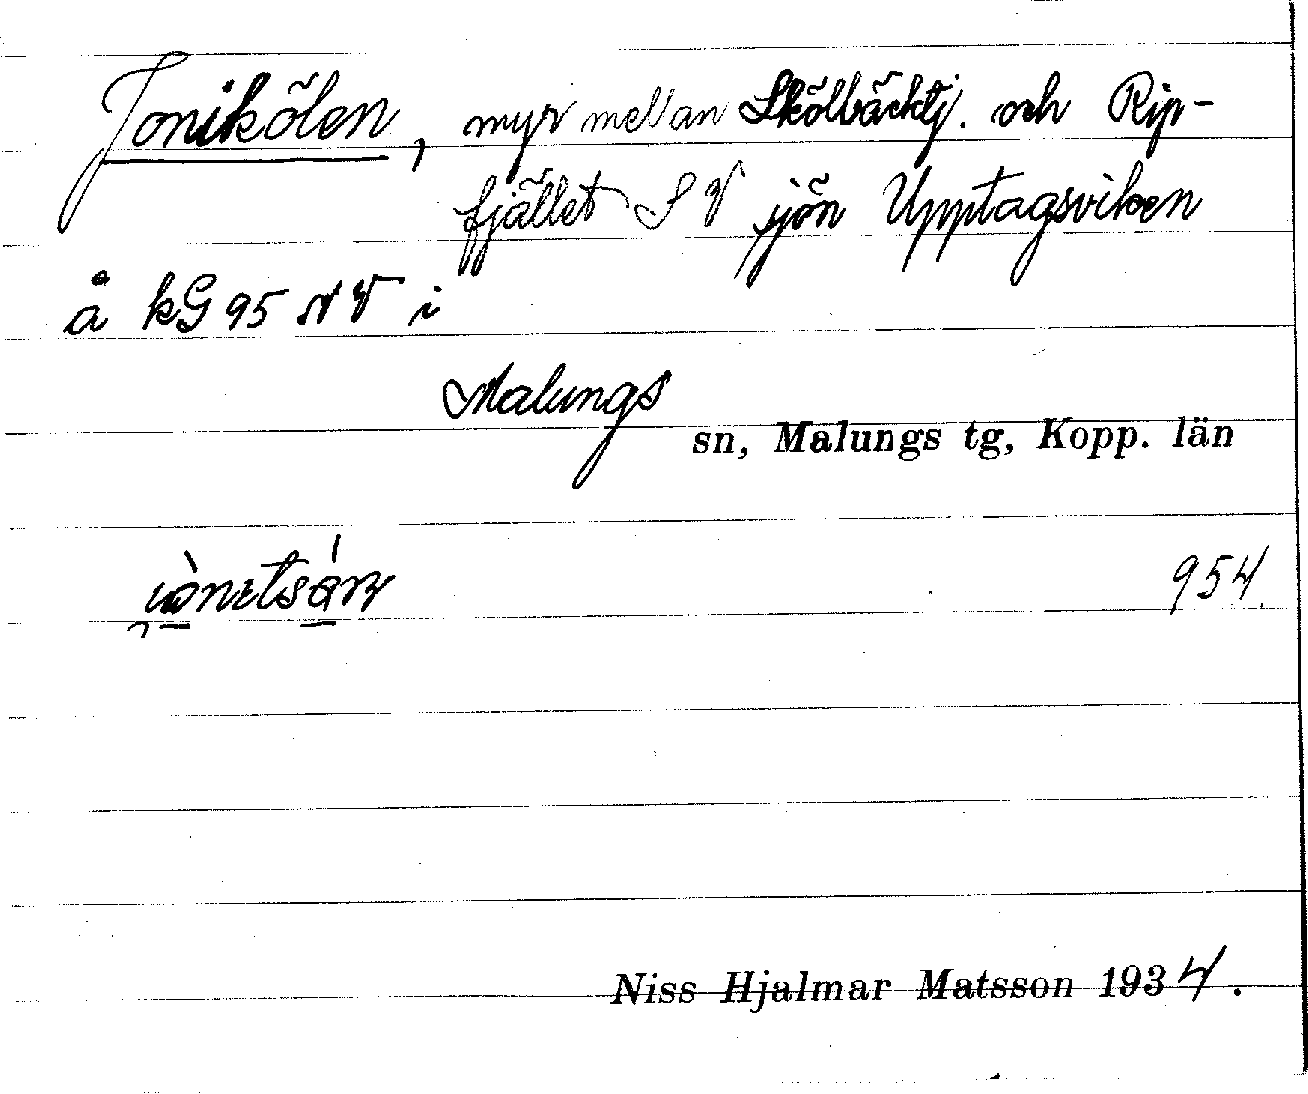 Jonikölen, myr mellan Skölbäcktj. och Rip-
fjället S V sjön Upptagsviken
å kG 95 NV i
Malungs
sn, Malungs tg, Kopp. län
954.
Niss Hjalmar Matsson 1934.